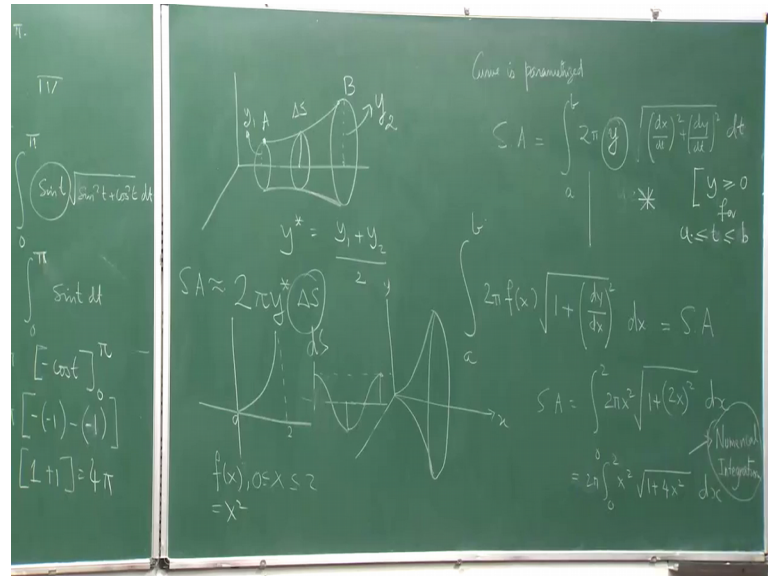 π.
π
∫₀^π Sint √(Sin²t + Cos²t) dt
∫₀^π Sint dt
[-cost]₀^π
[-(-1) - (-1)]
[1+1] = 4π
y₁ A ΔS B y₂
y* = (y₁ + y₂)/2
SA ≈ 2πy* ΔS
dS
2
f(x), 0 ≤ x ≤ 2
= x²
y
x
Curve is parametrized
S A = ∫ₐᵇ 2π y √((dx/dt)² + (dy/dt)²) dt
* [y ≥ 0
for
a ≤ t ≤ b
∫ₐᵇ 2π f(x) √(1 + (dy/dx)²) dx = S.A
S A = ∫₀² 2πx² √(1+(2x)²) dx
= 2π ∫₀² x² √(1+4x²) dx
Numerical
Integration